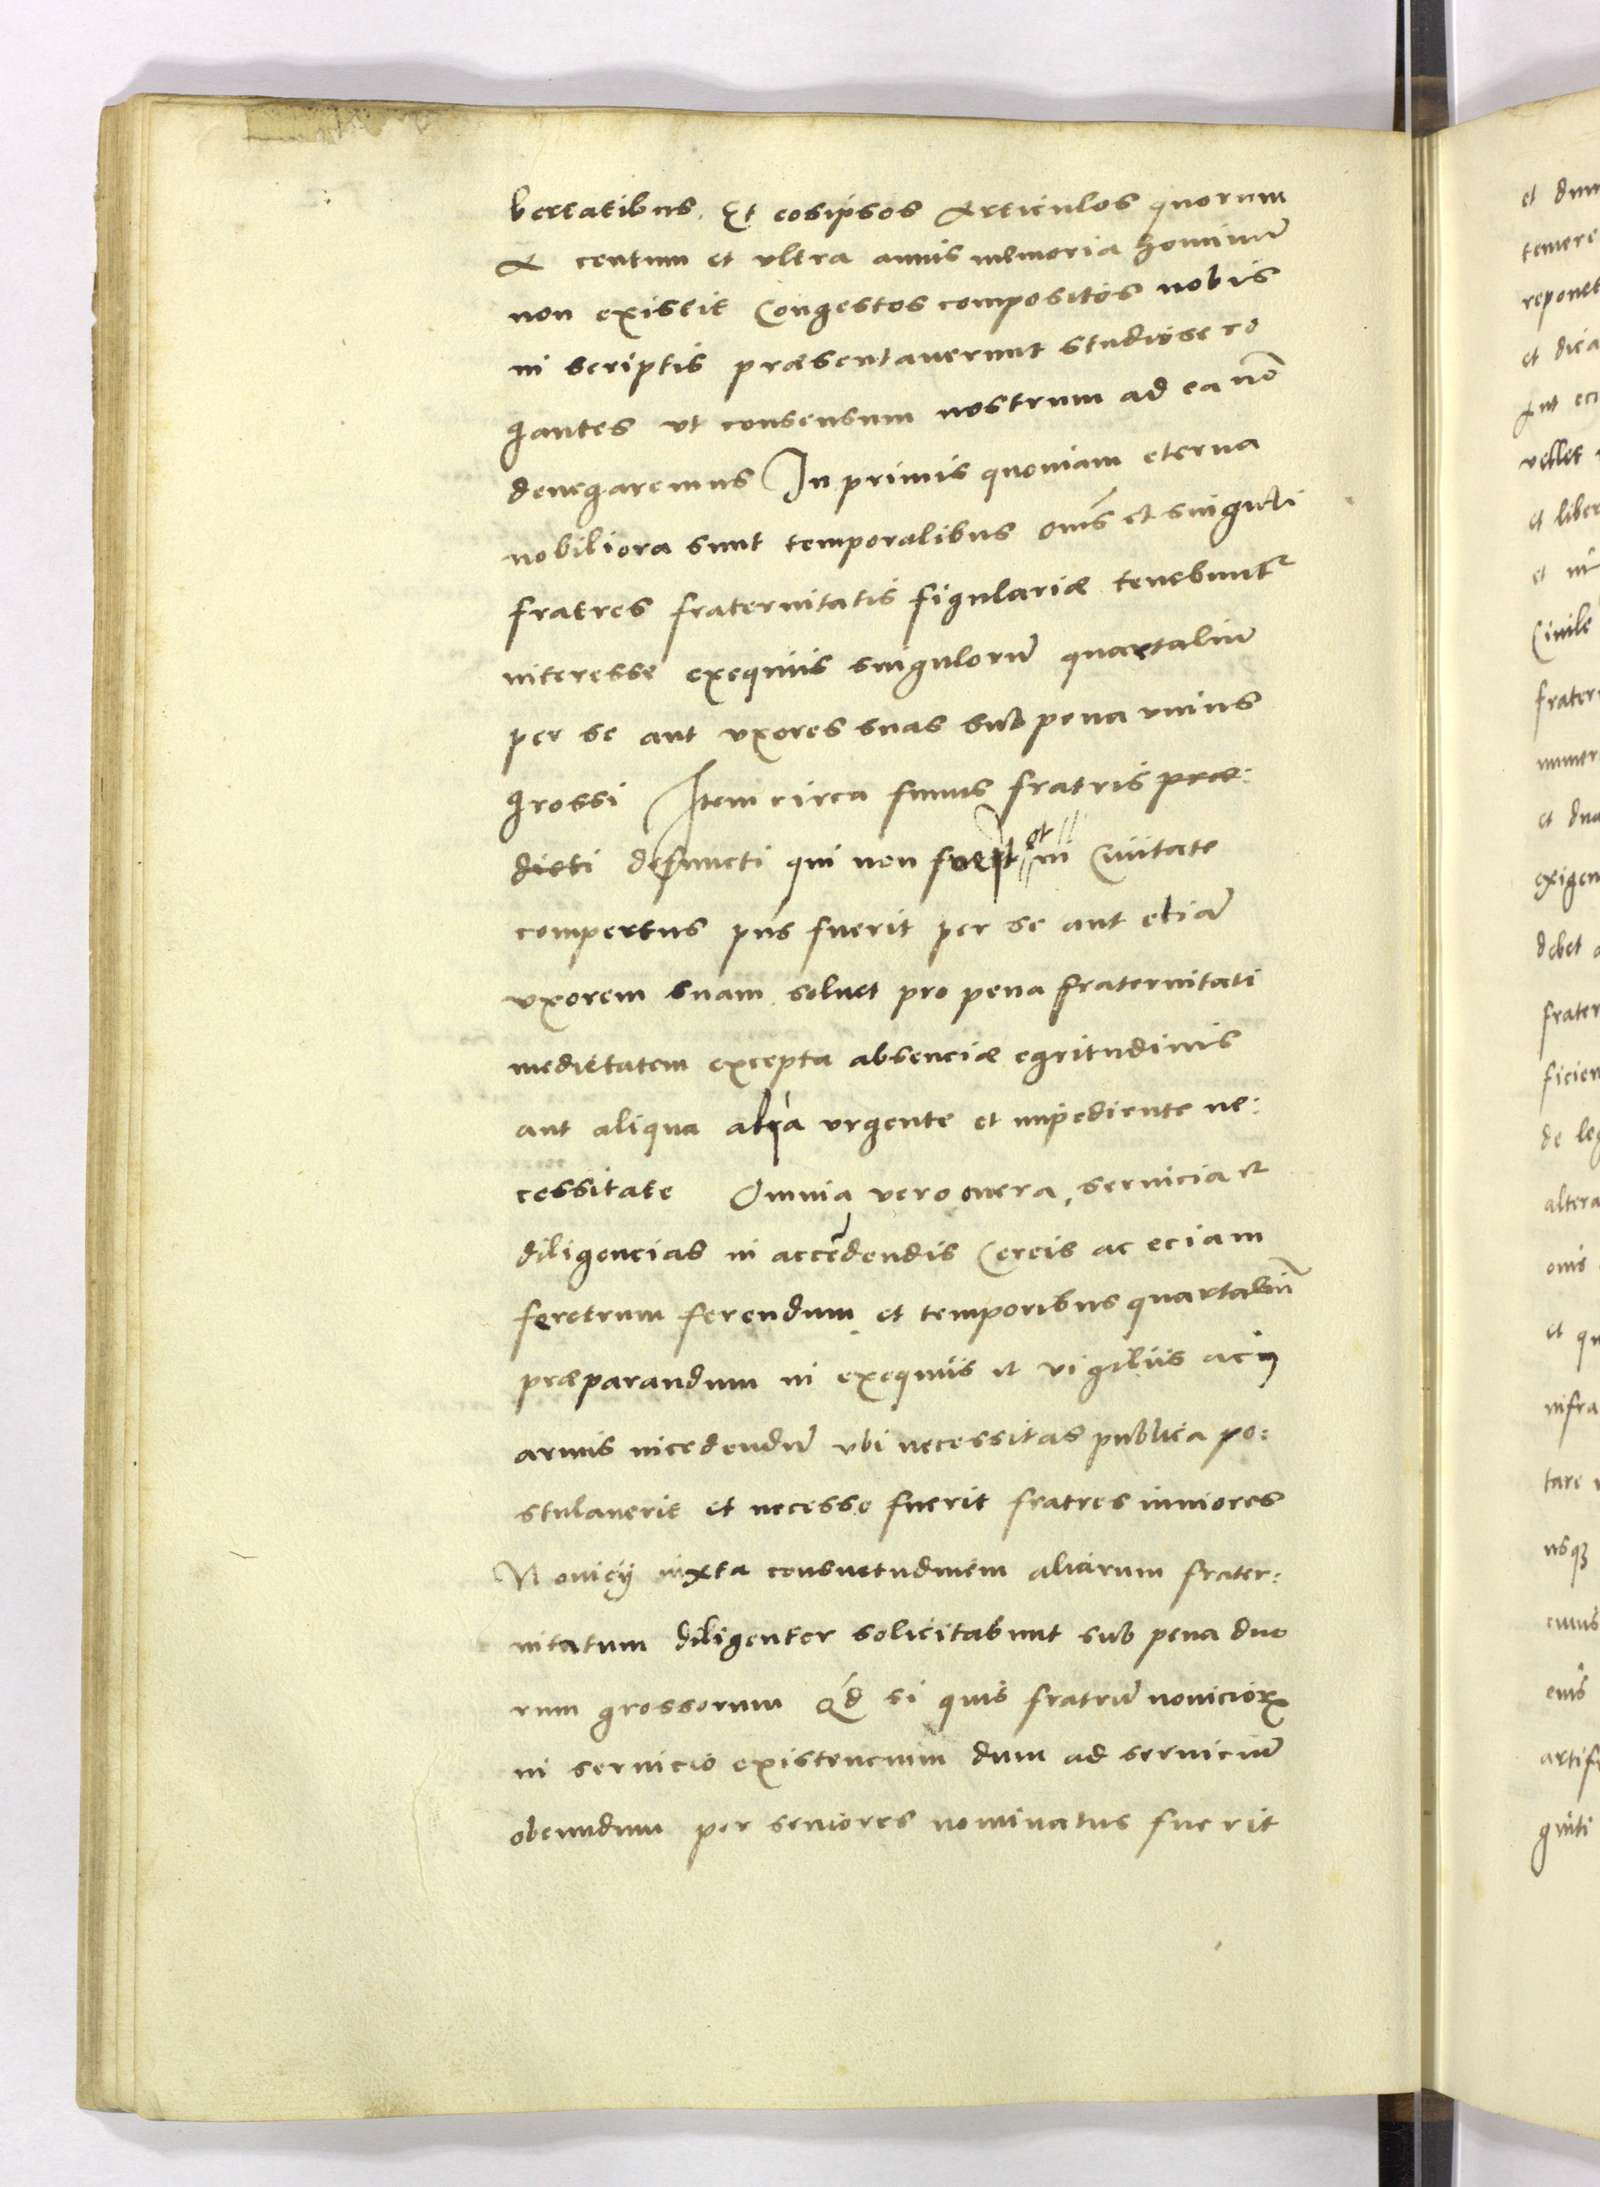 bertatibus. Et eosipsos Articulos quorum
A centum et ultra annis memoria hominū
non existit Congestos compositos nobis
in scriptis præsentaverunt studiose ro
gantes ut consensum nostrum ad ea nō
denegaremus In primis quoniam eterna
nobiliora sunt temporalibus oms̄ et singuli
fratres fraternitatis figulariæ tenebunt᷑
interesse exequiis singulorū quartaliū
per se aut uxores suas sub pena unius
grossi Item circa funus fratris præ:
dicti defuncti qui non fuerit et in Civitate
compertus pñs fuerit per se aut etiā
uxorem suam soluet pro pena fraternitati
medietatem excepta absenciæ egritudinis
aut aliqua alia urgente et impediente ne:
cessitate Omnia vero onera, servicia et
diligencias in accendendis Cereis ac eciam
feretrum ferendum et temporibus quartaliū
præparandum in exequiis et vigiliis ac in
armis incedendū ubi necessitas publica po:
stulaverit et necesse fuerit fratres iuniores
Novicij iuxta consuetudinem aliarum frater:
nitatum diligenter solicitabunt sub pena duo
rum grossorum Qd si quis fratrū novicioꝝ
in servicio existencium dum ad serviciū
obeundum per seniores nominatus fuerit
et
reponet
et dica
velles
et liber
et in
Civile
frater
et dua
exigen
debet
frater
ficien
de leg
altera
onis
et qu
infra
tare
usqꝫ
cuius
eius
artifi